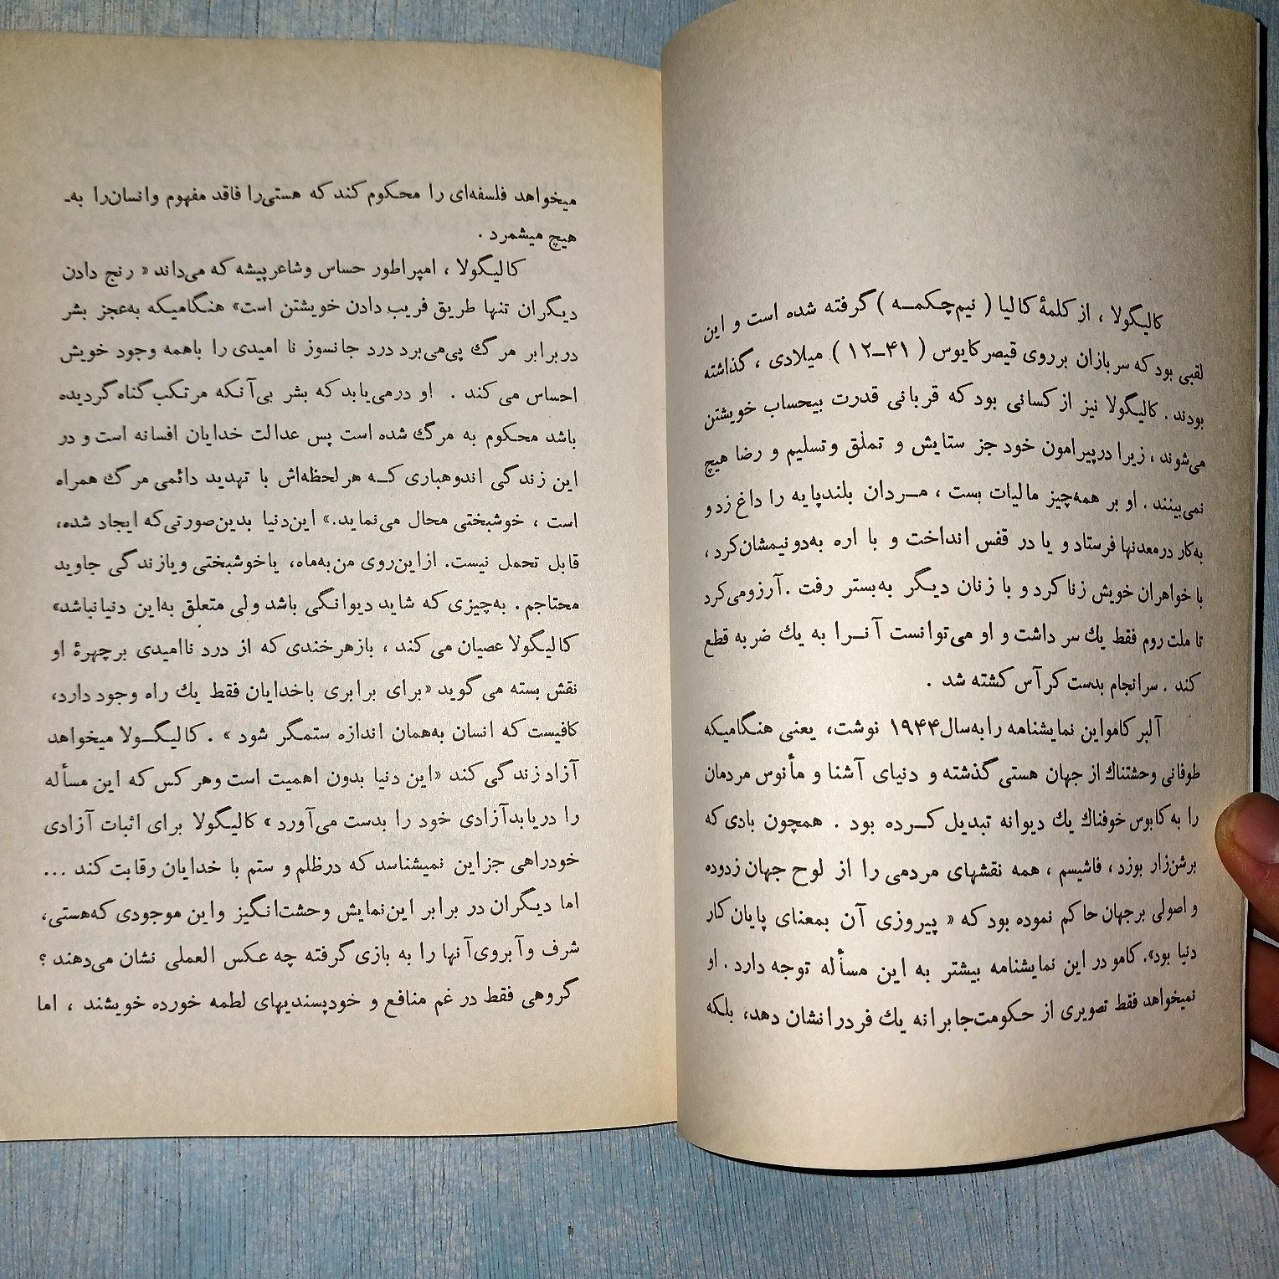 کالیگولا ، از کلمهٔ کالیا ( نیم‌چکمـه ) گرفته شده است و این
لقبی بود که سربازان برروی قیصر کایوس ( ۴۱–۱۲ ) میلادی ، گذاشته
بودند . کالیگولا نیز از کسانی بود که قربانی قدرت بیحساب خویشتن
می‌شوند ، زیرا درپیرامون خود جز ستایش و تملق وتسلیم و رضا هیچ
نمی‌بینند . او بر همه‌چیز مالیات بست ، مـردان بلندپایه را داغ زد و
به‌کار درمعدنها فرستاد و یا در قفس انداخت و با اره به‌دونیمشان‌کرد ،
با خواهران خویش زنا کرد و با زنان دیگر به‌بستر رفت . آرزومی‌کرد
تا ملت روم فقط یك سر داشت و او می‌توانست آنـرا به یك ضربه قطع
کند . سرانجام بدست کرآس کشته شد .
آلبر کامواین نمایشنامه رابه‌سال ۱۹۴۴ نوشت، یعنی هنگامیکه
طوفانی وحشتناك از جهان هستی گذشته و دنیای آشنا و مأنوس مردمان
را به کابوس خوفناك یك دیوانه تبدیل کـرده بود . همچون بادی که
برشن‌زار بوزد ، فاشیسم ، همه نقشهای مردمی را از لوح جهان زدوده
و اصولی برجهان حاکم نموده بود که « پیروزی آن بمعنای پایان کار
دنیا بود». کامو در این نمایشنامه بیشتر به این مسأله توجه دارد . او
نمیخواهد فقط تصویری از حکومت‌جابرانه یك فردرانشان دهد، بلکه
میخواهد فلسفه‌ای را محکوم کند که هستی‌را فاقد مفهوم وانسان‌را به‌ـ
هیچ میشمرد .
کالیگولا ، امپراطور حساس وشاعرپیشه که می‌داند « رنج دادن
دیگران تنها طریق فریب دادن خویشتن است» هنگامیکه به‌عجز بشر
دربرابر مرگ پی‌می‌برد درد جانسوز نا امیدی را باهمه وجود خویش
احساس می کند . او درمی‌یابد که بشر بی‌آنکه مرتکب گناه گردیده
باشد محکوم به مرگ شده است پس عدالت خدایان افسانه است و در
این زندگی اندوهباری کـه هرلحظه‌اش با تهدید دائمی مرگ همراه
است ، خوشبختی محال می‌نماید.» این‌دنیا بدین‌صورتی‌که ایجاد شده،
قابل تحمل نیست. ازاین‌روی من‌به‌ماه، یاخوشبختی ویازندگی جاوید
محتاجم . به‌چیزی که شاید دیوانگی باشد ولی متعلق به‌این دنیانباشد»
کالیگولا عصیان می کند ، بازهرخندی که از درد ناامیدی برچهرهٔ او
نقش بسته می گوید «برای برابری باخدایان فقط یك راه وجود دارد،
کافیست که انسان به‌همان اندازه ستمگر شود » . کالیگـولا میخواهد
آزاد زندگی کند «این دنیا بدون اهمیت است وهر کس که این مسأله
را دریابدآزادی خود را بدست می‌آورد » کالیگولا برای اثبات آزادی
خودراهی جزاین نمیشناسد که درظلم و ستم با خدایان رقابت کند ...
اما دیگران در برابر این‌نمایش وحشت‌انگیز واین موجودی که‌هستی،
شرف وآبروی‌آنها را به بازی گرفته چه عکس العملی نشان می‌دهند ؟
گروهی فقط در غم منافع و خودپسندیهای لطمه خورده خویشند ، اما